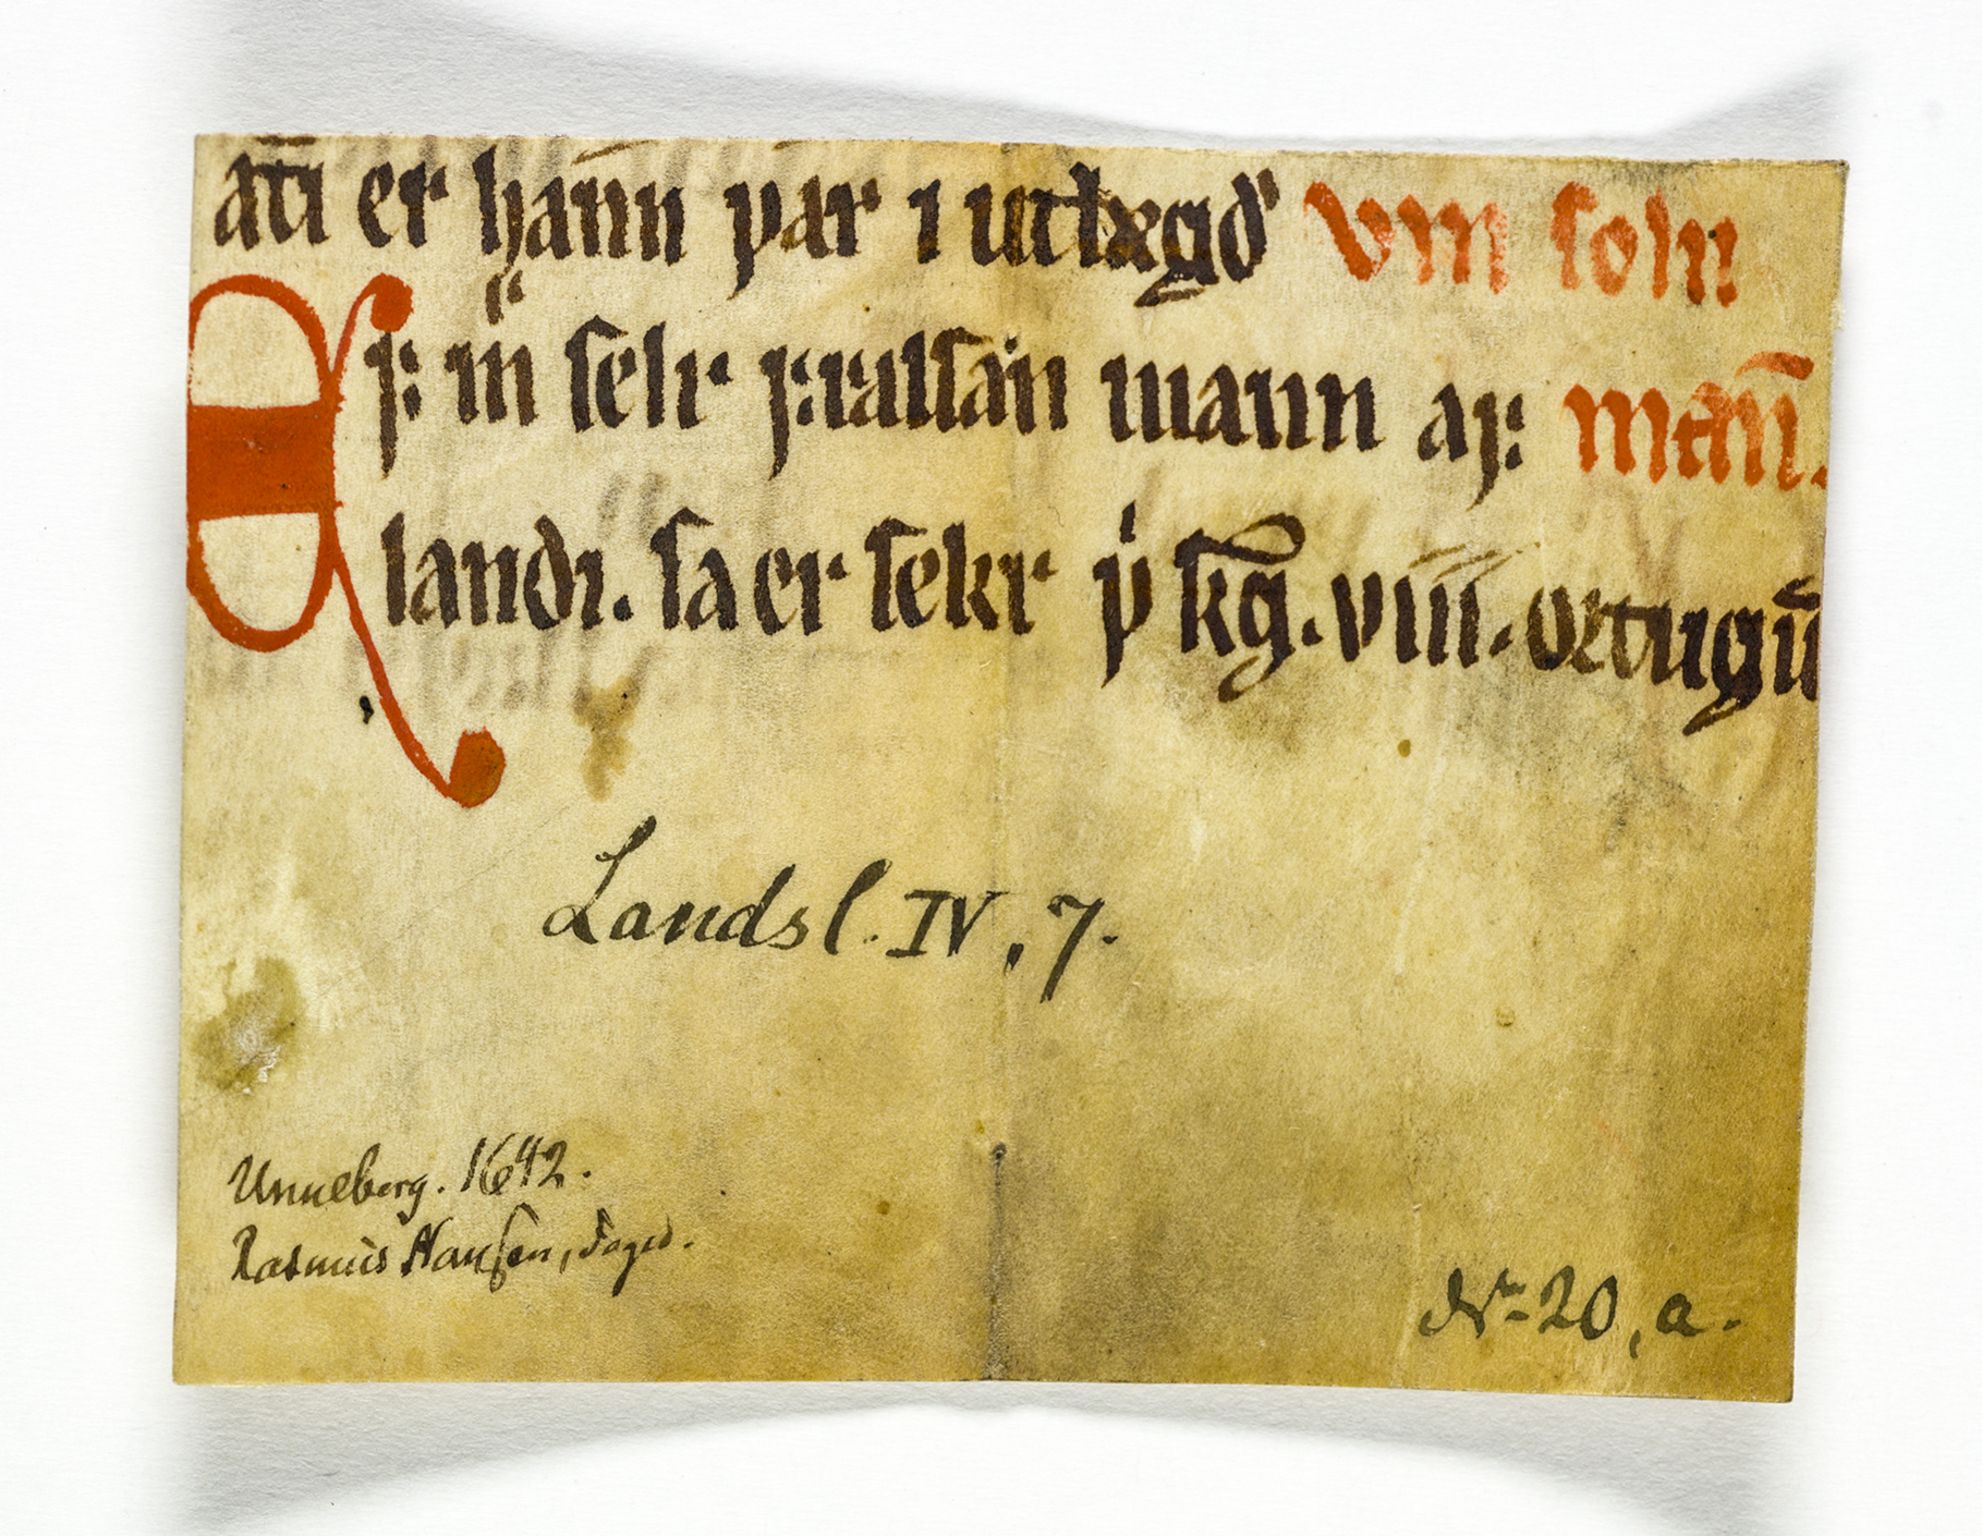 atı er hann̄ ꝩar ı utlægð vm ſolu
Eꝼ mͣn̄ ſelr ꝼralſan mann aꝼ man̄.
landı. ſa er ſekr ꝩͥ kḡ. vııı. ortugū
Landsl. IV, 7.
Unneberg. 1642.
Rasmus Hansen, Foged.
Nr. 20, a.